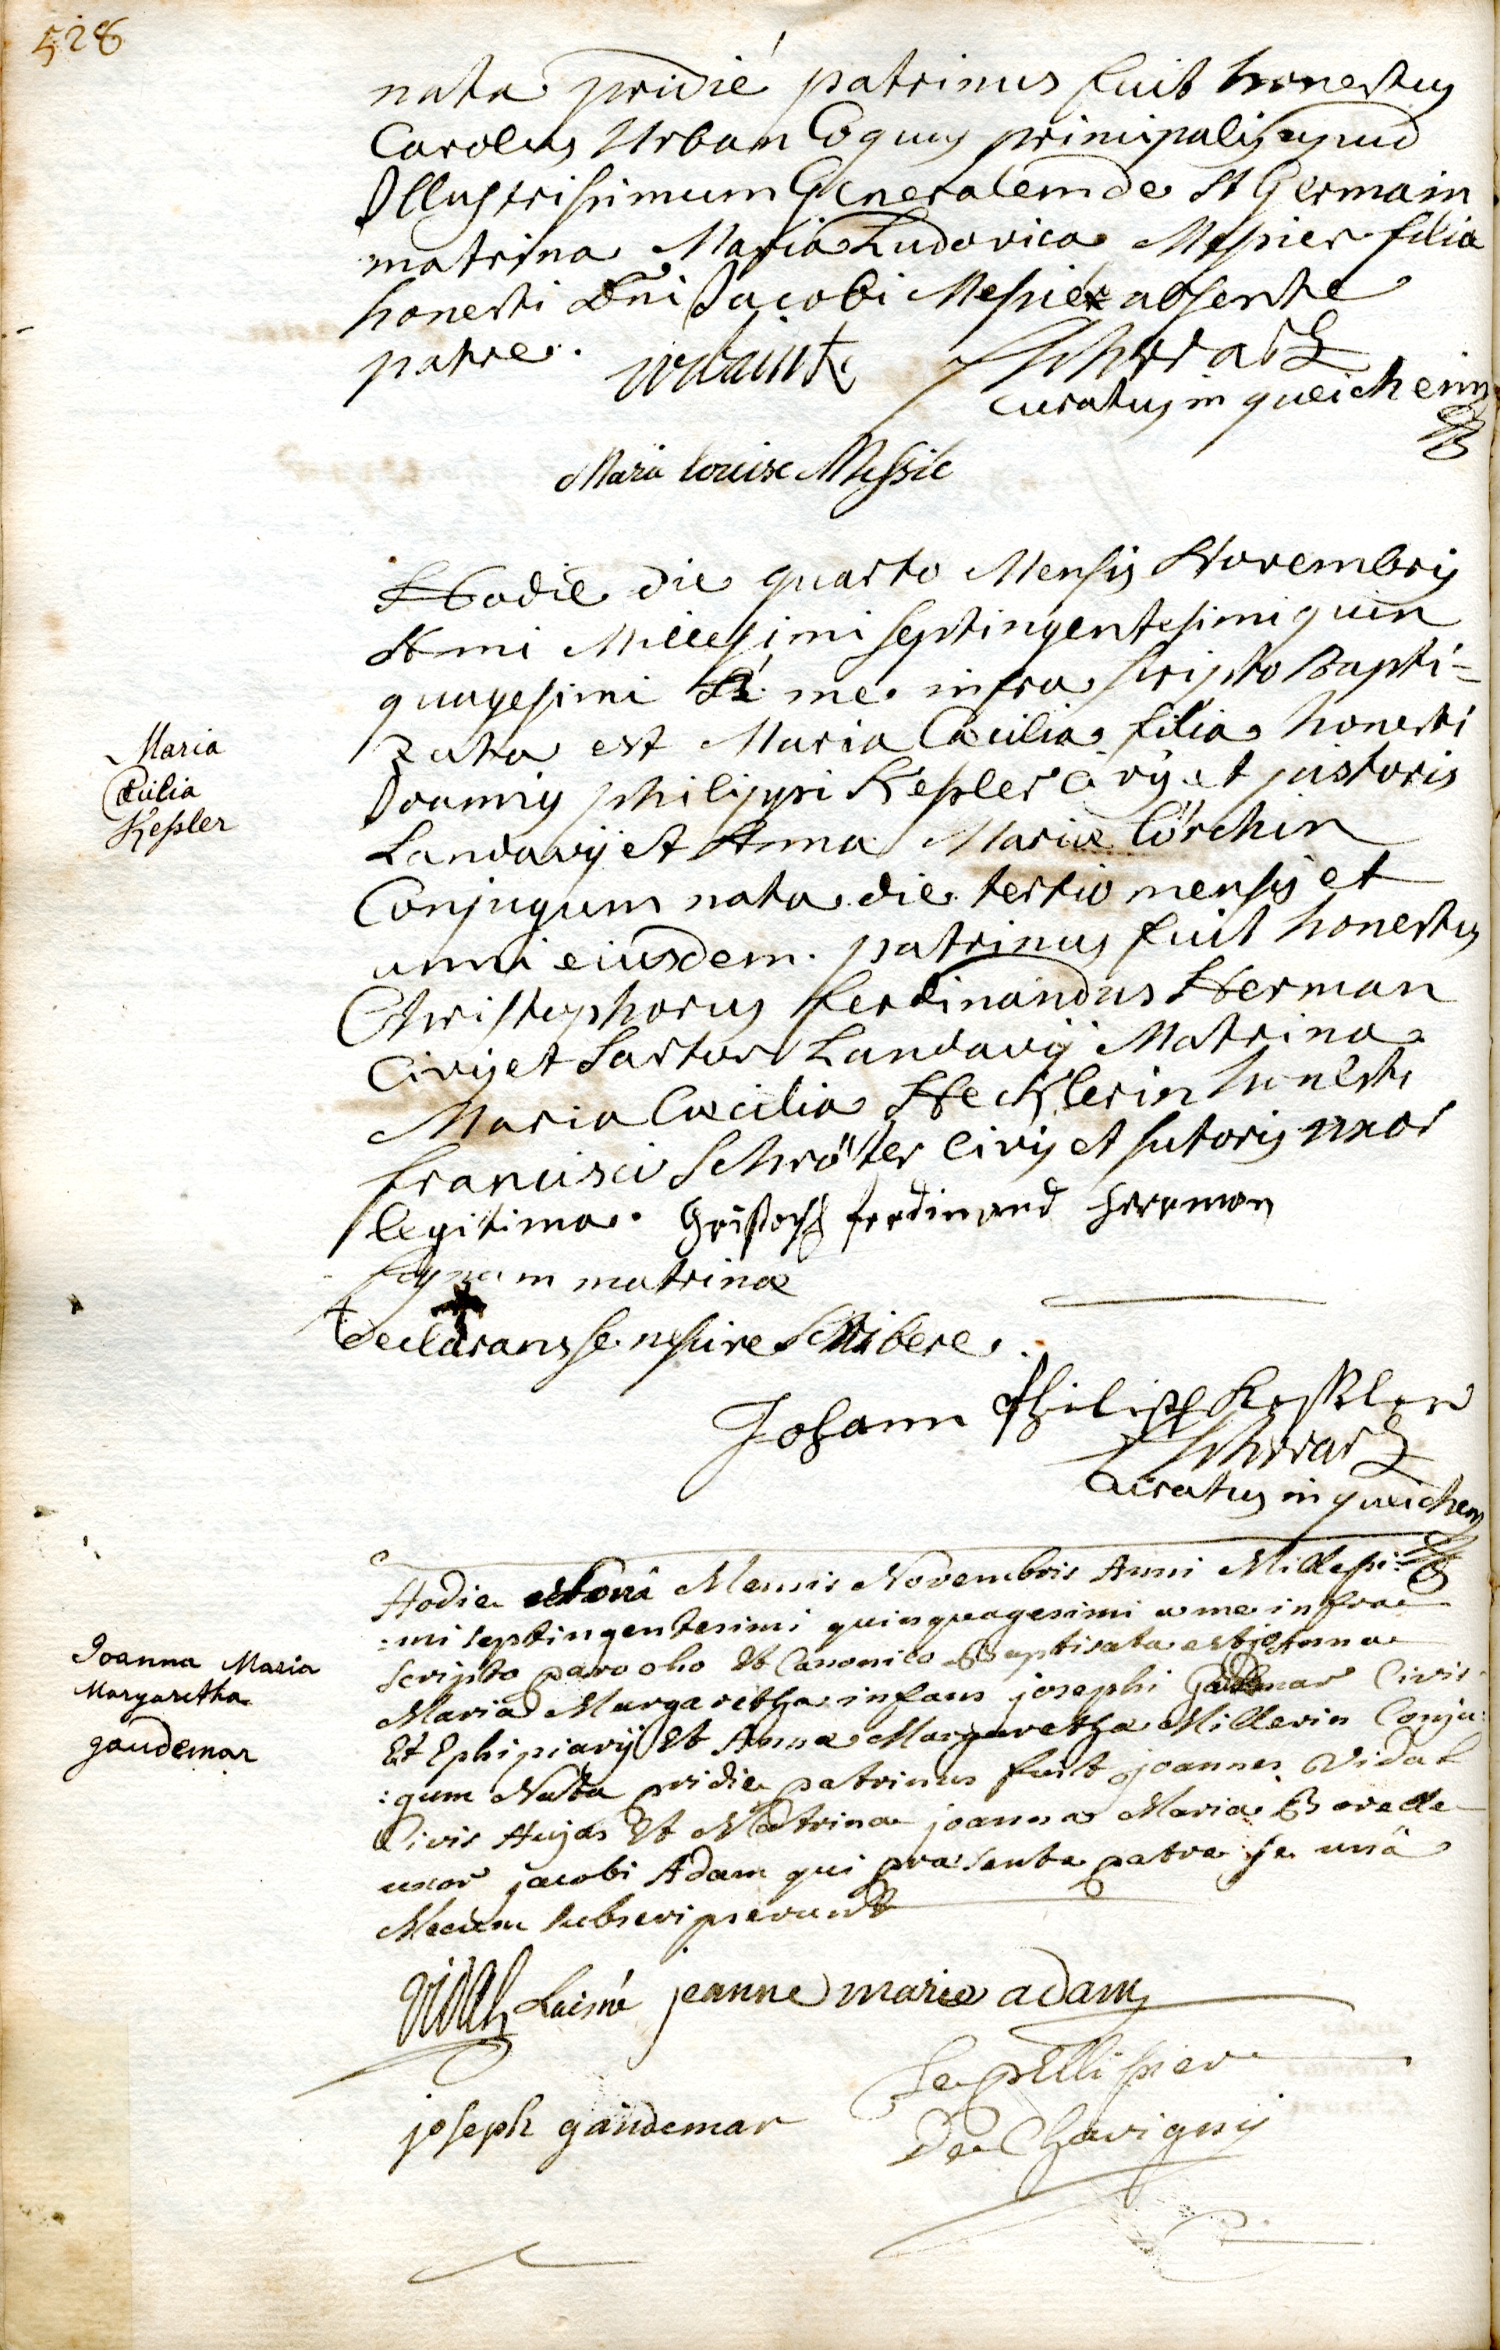 528
nata pridie patrinus fuit honestus
Carolus Urban Coquus principalis apud
Illustrissimum Generalem de St Germain
matrina Maria Ludovica Messier filia
honesti Dni Jacobi Messier absente
patre. Schwartz
curatus in queicheim
Marie louise Messié
Hodie die quarto Mensis Novembris
Anni Millesimi septingentesimi quin
quagesimi A me infra scripto Bapti=
zata est Maria Cæcilia filia honesti
Joannis philippi Kessler civis et pistoris
Landavij et Anna Maria Lörchin
Conjugum nata die tertio mensis et
anni eiusdem. patrinus fuit honestus
Christophorus ferdinandus Herman
Civis et Sartor Landavij Matrina
Maria Cæcilia Hecklerin honesti
francisci Schröter Civis et sutoris uxor
legitima. Christoph ferdinand Herrman
signum matrinæ
declarans se nescire scribere.
Maria
Cæcilia
Kessler
Johann Philipp Kessler
Schwartz
Curatus in queicheim
Hodie Mensis Novembris Anni Millesi:
:mi septingentesimi quinquagesimi a me infra
scripto parocho et Canonico Baptisata est joanna
Maria Margaretha infans josephi gaudemar Civis
Et Ephipiarij Et Anna Margaretha Millerin Conju:
:gum Nata pridie patrinus fuit joannes Vidal
Civis hujas Et Matrina joanna Maria Borelle
uxor jacobi Adam qui præsente patre se unâ
Mecum subscripserunt
Joanna Maria
Margaretha
gaudemar
Vidal Lainé jeanne marie adam
joseph gaudemar
Le pellissier
De Chavigny